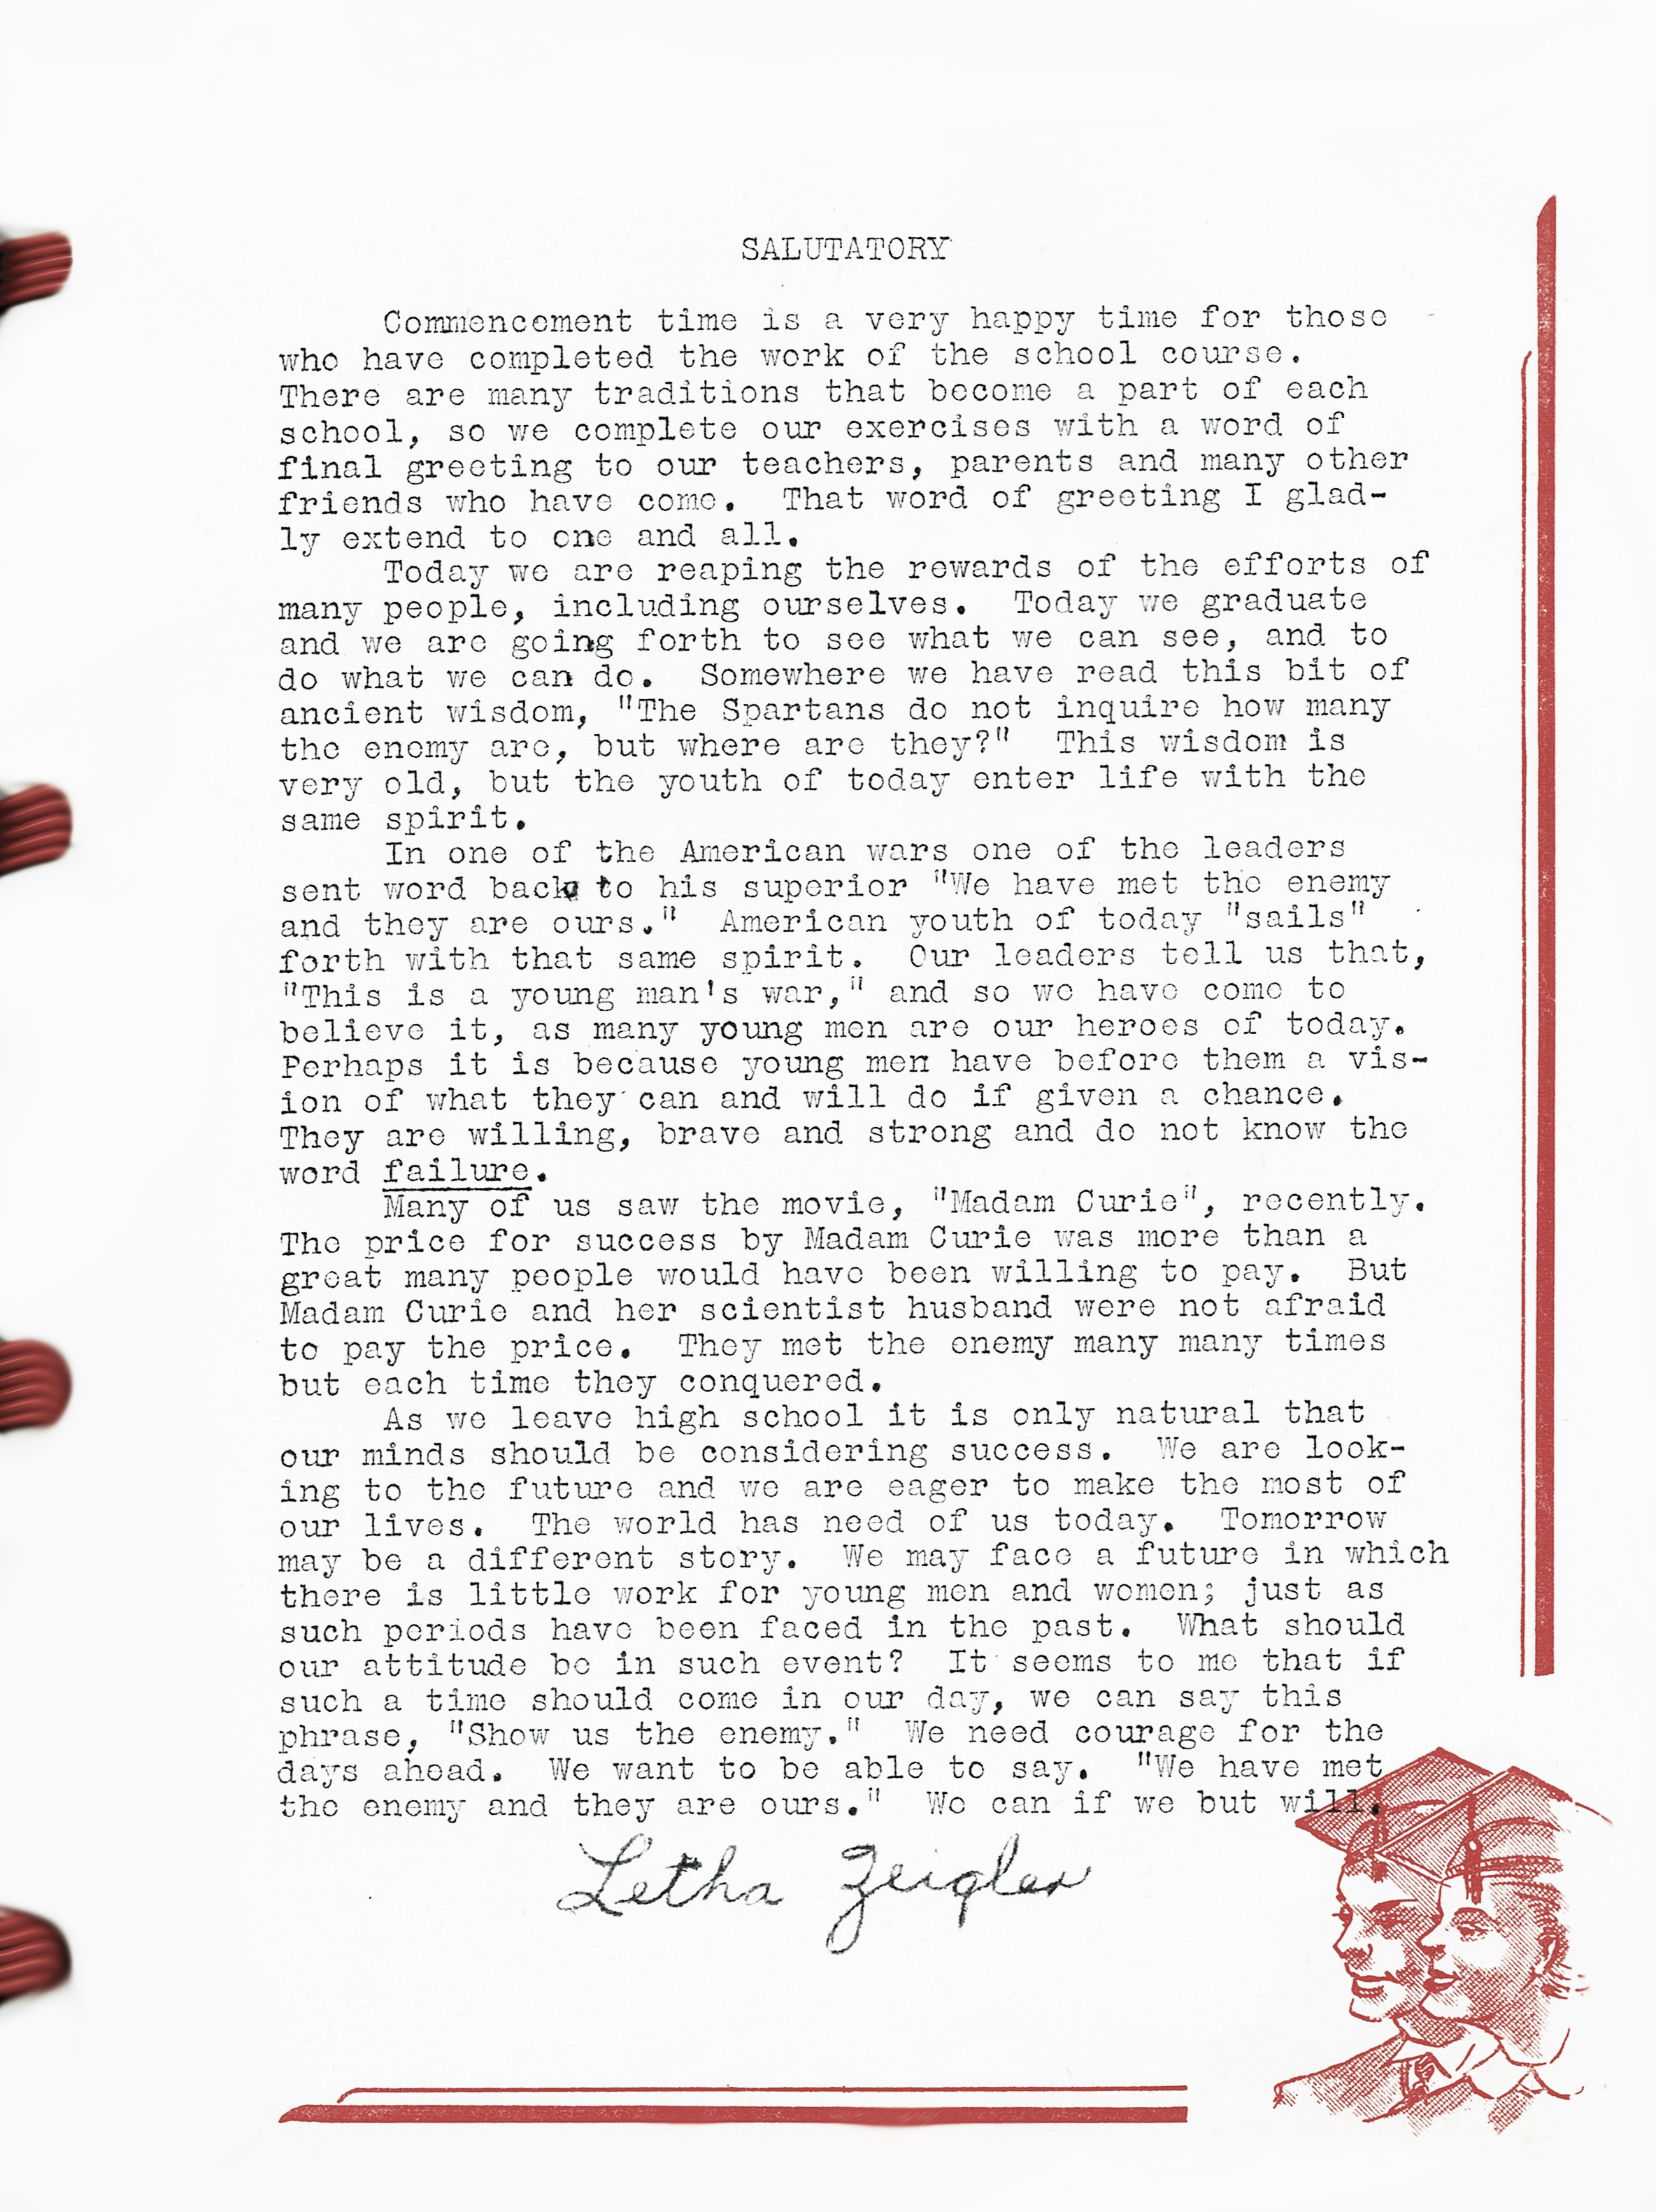 SALUTATORY
Commencement time is a very happy time for those
who have completed the work of the school course.
There are many traditions that become a part of each
school, so we complete our exercises with a word of
final greeting to our teachers, parents and many other
friends who have come.  That word of greeting I glad-
ly extend to one and all.
Today we are reaping the rewards of the efforts of
many people, including ourselves.  Today we graduate
and we are going forth to see what we can see, and to
do what we can do.  Somewhere we have read this bit of
ancient wisdom, "The Spartans do not inquire how many
the enemy are, but where are they?"  This wisdom is
very old, but the youth of today enter life with the
same spirit.
In one of the American wars one of the leaders
sent word back to his superior "We have met the enemy
and they are ours."  American youth of today "sails"
forth with that same spirit.  Our leaders tell us that,
"This is a young man's war," and so we have come to
believe it, as many young men are our heroes of today.
Perhaps it is because young men have before them a vis-
ion of what they can and will do if given a chance.
They are willing, brave and strong and do not know the
word failure.
Many of us saw the movie, "Madam Curie", recently.
The price for success by Madam Curie was more than a
great many people would have been willing to pay.  But
Madam Curie and her scientist husband were not afraid
to pay the price.  They met the enemy many many times
but each time they conquered.
As we leave high school it is only natural that
our minds should be considering success.  We are look-
ing to the future and we are eager to make the most of
our lives.  The world has need of us today.  Tomorrow
may be a different story.  We may face a future in which
there is little work for young men and women; just as
such periods have been faced in the past.  What should
our attitude be in such event?  It seems to me that if
such a time should come in our day, we can say this
phrase, "Show us the enemy."  We need courage for the
days ahead.  We want to be able to say.  "We have met
the enemy and they are ours."  We can if we but will.
Letha Zeigler